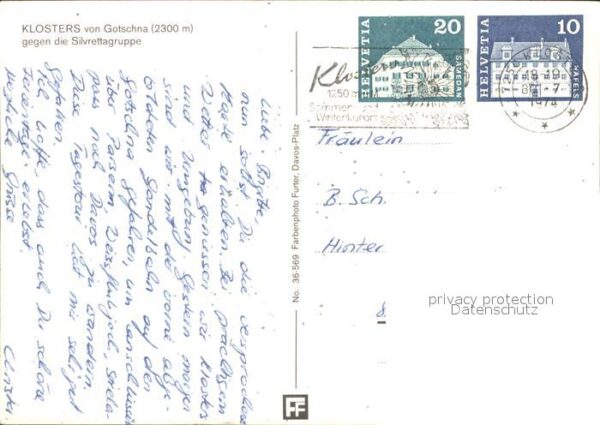 KLOSTERS von Gotschna (2300 m)
gegen die Silvrettagruppe
HELVETIA
20
SAMEDAN
HELVETIA
10
NÄFELS
Klosters
1250 m
Sommer
Winterkurort
1974
Liebe Brigitte,
nun sollst Du die versprochene
Karte erhalten. Bei prächtigem
Wetter geniessen wir Klosters
und Umgebung. Gestern morgen
sind wir mit der
Gondelbahn auf den
Gotschna gefahren, um anschliessend
über Parsenn, Weissfluhjoch,
pass nach Davos zu wandern.
Diese Tagestour hat mir
gefallen.
Ich hoffe, dass auch Du schöne
Ferientage erlebst.
Herzliche Grüsse
No. 36-569 Farbenphoto Furter, Davos-Platz
FF
Fräulein
B. Sch.
Hinter
8.
privacy protection
Datenschutz